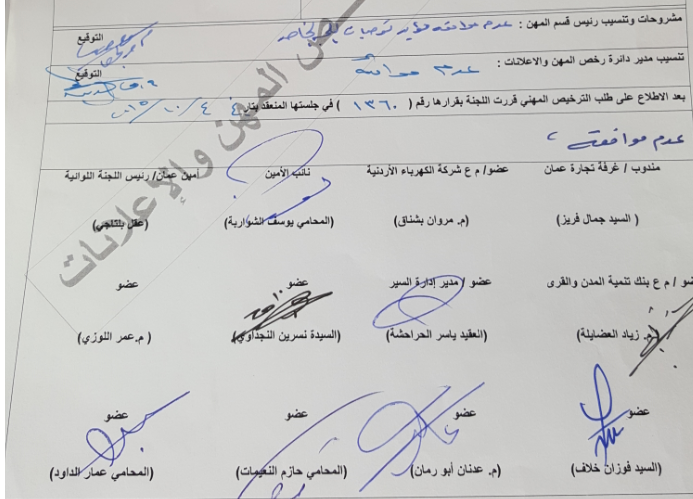 مشروحات وتنسيب رئيس قسم المهن : عدم موافقة مؤيد توصيات
التوقيع
تنسيب مدير دائرة رخص المهن والاعلانات : عدم موافقة
التوقيع
بعد الاطلاع على طلب الترخيص المهني قررت اللجنة بقرارها رقم ( ١٣٦٠ ) في جلستها المنعقد بتاريخ
عدم موافقة
مندوب / غرفة تجارة عمان عضو/ م ع شركة الكهرباء الأردنية نائب الأمين أمين عمان/ رئيس اللجنة اللوائية
( السيد جمال فريز) (م. مروان بشناق) (المحامي يوسف الشواربة) (عقل بلتاجي)
ضو / م ع بنك تنمية المدن والقرى عضو / مدير إدارة السير عضو عضو
(م. زياد العضايلة) (العقيد ياسر الحراحشة) (السيدة نسرين النجداوي) (م.عمر اللوزي)
عضو عضو عضو عضو
(السيد فوزان خلاف) (م. عدنان أبو رمان) (المحامي حازم النعيمات) (المحامي عمار الداود)
ص المهن والإعلانات